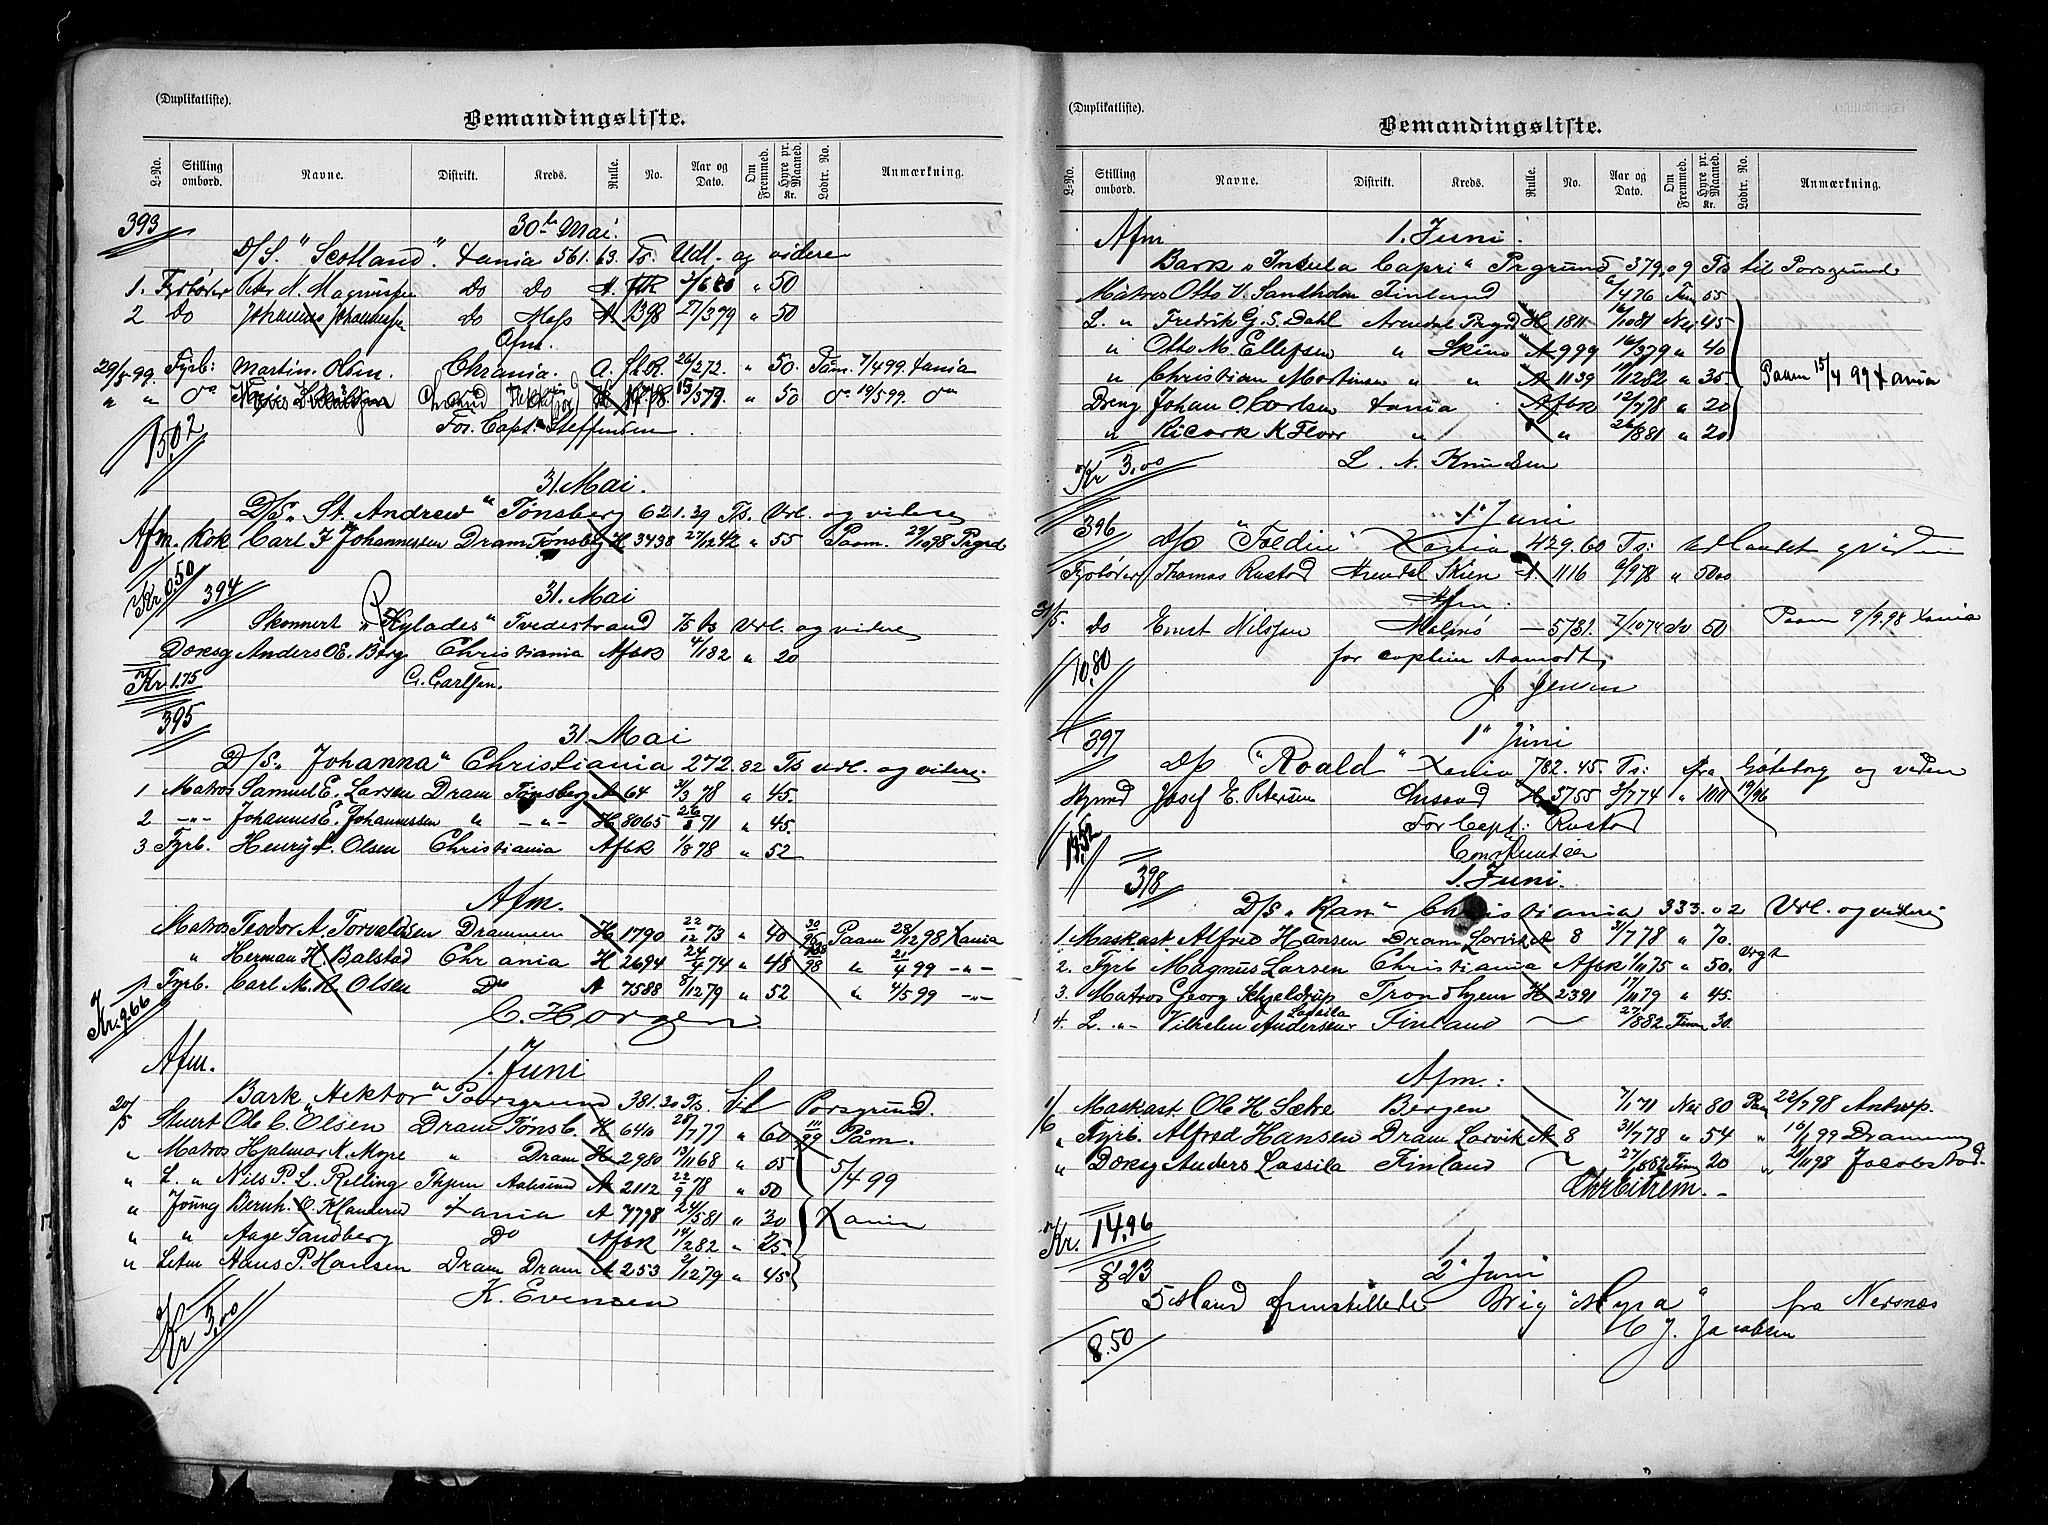 (Duplikatliste).
Bemandingsliste.
L-No. Stilling ombord. Navne. Distrikt. Kreds. Rulle. No. Aar og Dato. Om Fremmed. Hyre pr. Maaned. Kr. Lodtr. No. Anmærkning.
393 30te Mai.
D/S. "Scotland". Xania 561.63. Ts. Udl. og videre
1. Fyrbøder Peter N. Magnussen Do Do A. " 50
2 Do Johannes Johannessen do Moss A. 1398 27/3 79 " 50
Afm.
29/5 99. Fyrb: Martin Olsen. Chrania. A. 26/2 72. " 50. Påm. 7/4 99. Xania
" " do Chrsund H " 50 do 19/5 99. do
For. Capt. Steffensen
15.02
31. Mai.
D/S. "St. Andrew" Tønsberg 621.39 Ts. Udl. og videre
Afm. Kok Carl F Johannessen Dram Tønsberg H 3438 27/12 42 " 55 Paam. 29/10 78 Prgrd
Kr 0.50
394 31. Mai
Skonnert "Pylades" Tvedestrand 75 ts Udl. og videre
Doksg Anders O E. Berg Christiania Afbk 4/1 82 " 20
Kr 1.75 C. Carlsen.
395
31. Mai
D/S. "Johanna" Christiania 272.82 Ts Udl. og videre
1 Matros Samuel E. Larsen Dram Tønsberg A 64 31/3 78 " 45.
2 -"- Johannes E. Johannessen " -"- H 8065 26/8 71 " 45.
3 Fyrb. Henry L. Olsen Christiania Afbk 1/8 78 " 52
Afm.
Matros Teodor A. Torvaldsen Drammen H 1790 22/12 73 " 40 30/96 Paam 28/12 98 Xania
" Herman H. Balstad Chrania H 2694 24/4 74 " 48 " 21/4 99 -"-
Fyrb. Carl M. A Olsen Do A 7588 8/12 79 " 52 " 4/5 99 -"-
Kr. 9.66 C. Horgen
Afm. 1. Juni
Bark "Hektor" Porsgrund 381.30 Ts. til Porsgrund.
20/5 Stuert Ole C. Olsen Dram Tønsb. H 640 20/7 77 " 60 111/99 Påm.
" Matros Hjalmar N. Myre " Dram H 2980 13/11 68 " 55
" L. " Nils P. L. Relling Thjem Aalesund A 2112 22/9 78 " 50 5/4 99
" Joung Bernh. O. Klanderud Xania A 7798 24/5 81 " 30 Xania
" " Aage Sandberg Do Afbk 14/2 82 " 25.
" Letm Hans P. Hansen Dram Dram A 253 2/12 79 " 45
K. Evensen
Kr 3.00
(Duplikatliste).
Bemandingsliste.
L-No. Stilling ombord. Navne. Distrikt. Kreds. Rulle. No. Aar og Dato. Om Fremmed. Hyre pr. Maaned. Kr. Lodtr. No. Anmærkning.
Afm 1. Juni.
Bark "Insula Capri" Prgrund 379.09 Ts til Porsgrund
Matros Otto V. Sandholm Finland 6/4 76 Fin 55
L. " Fredrik G. S. Dahl Arendal Prgrd H 1811 16/10 81 Nei 45
" Otto M. Ellefsen " Skien A 999 16/3 79 " 40
" Christian Mortinsen " " A 1139 19/12 82 " 35. Paam 15/4 99 Xania
Dreng Johan O. Carlsen Xania Afbk 12/7 78 " 20
" Ricark K Floor " " 26/8 81 " 20
Kr 3.00 L. N. Knudsen
396 1" Juni
D/S "Fredin" Xania 429.60 Ts: Udlandet og viden
Fyrbøder Thomas Rustad Arendal Skien A. 1116 6/9 78 " 50 00
Afm:
31/5. Do Ernst Nilssen Malmø — 5731. 2/10 74 Sv 50 Paam 9/9.98 Xania
10.80 for captein Aamodt
J Jensen
397 1" Juni
D/S "Roald" Xania 782.45. Ts: fra Gøteborg og viden
Styrmd Josef E. Petersen Chrsand H 3755 3/7 74 " 100 19/96
For Capt: Rustad
398 1. Juni.
D/S. "Ran" Christiania 333.02 Udl. og videre
1. Maskast. Alfred Hansen Dram Larvik A 8 31/7 78 " 70.
2. Fyrb Magnus Larsen Christiania Afbk 1/11 75 " 50.
3. Matros Georg Schjeldrup Trondhjem H 2391 17/11 79 " 45.
4. L. "- Vilhelm Andersen Lassila Finland 27/8 82 Finn 30.
Afm:
1/6 Maskast. Ole H. Sætre Bergen 7/1 71 Nei 80 Paa 22/7 98 Antwrp.
" Fyrb. Alfred Hansen Dram Larvik A 8 31/7 78 " 54 " 16/1 99 Drammen
" Doksg Anders Lassila Finland 27/8 82 Finn 20 " 28/11 98 Jacobstad.
Kr. 14.96
§ 23 2" Juni
5 Mand fremstillede Brig "Myra" fra Nersnæs
C J. Jacobsen
8.50